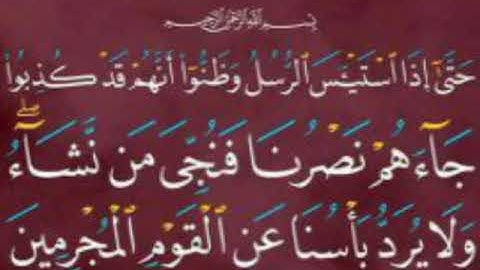 بِسْمِ اللَّهِ الرَّحْمَٰنِ الرَّحِيمِ
حَتَّىٰٓ إِذَا ٱسْتَيْـَٔسَ ٱلرُّسُلُ وَظَنُّوٓا۟ أَنَّهُمْ قَدْ كُذِبُوا۟
جَآءَهُمْ نَصْرُنَا فَنُجِّىَ مَن نَّشَآءُ ۖ
وَلَا يُرَدُّ بَأْسُنَا عَنِ ٱلْقَوْمِ ٱلْمُجْرِمِينَ